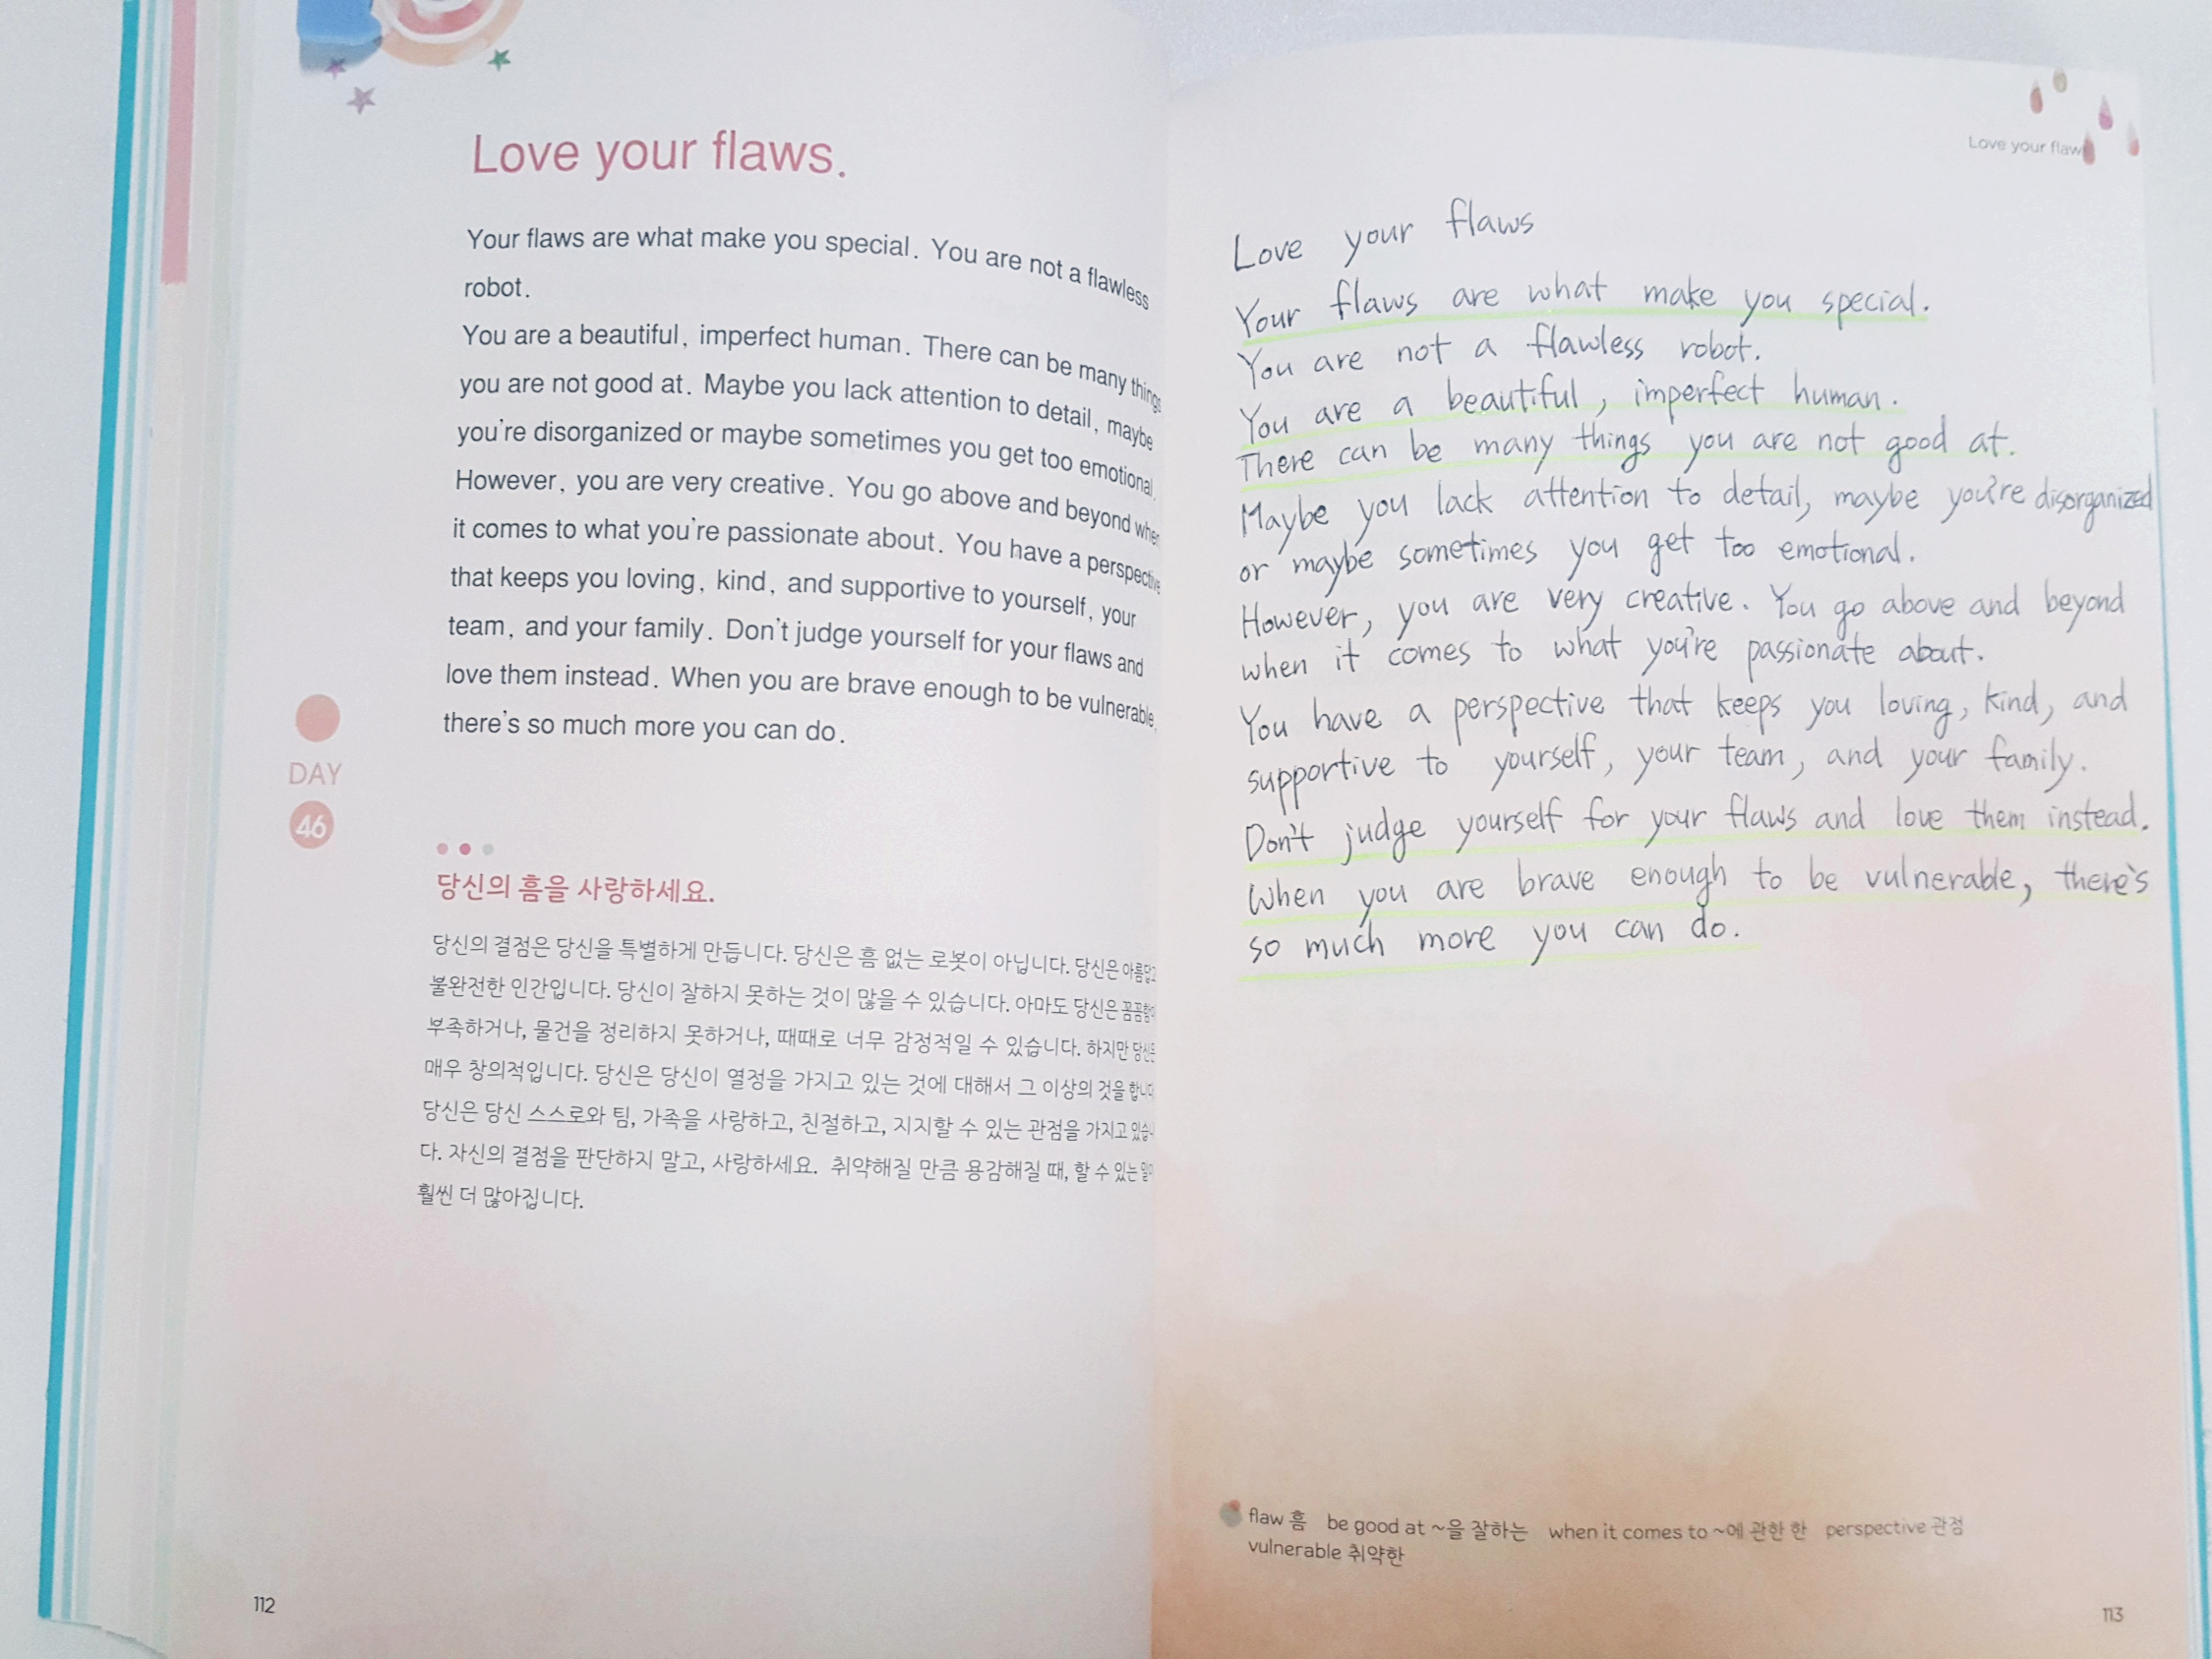 Love your flaws.
Your flaws are what make you special. You are not a flawless
robot.
You are a beautiful, imperfect human. There can be many things
you are not good at. Maybe you lack attention to detail, maybe
you're disorganized or maybe sometimes you get too emotional.
However, you are very creative. You go above and beyond when
it comes to what you're passionate about. You have a perspective
that keeps you loving, kind, and supportive to yourself, your
team, and your family. Don't judge yourself for your flaws and
love them instead. When you are brave enough to be vulnerable,
there's so much more you can do.
DAY
46
당신의 흠을 사랑하세요.
당신의 결점은 당신을 특별하게 만듭니다. 당신은 흠 없는 로봇이 아닙니다. 당신은 아름답고
불완전한 인간입니다. 당신이 잘하지 못하는 것이 많을 수 있습니다. 아마도 당신은 꼼꼼함이
부족하거나, 물건을 정리하지 못하거나, 때때로 너무 감정적일 수 있습니다. 하지만 당신은
매우 창의적입니다. 당신은 당신이 열정을 가지고 있는 것에 대해서 그 이상의 것을 합니다
당신은 당신 스스로와 팀, 가족을 사랑하고, 친절하고, 지지할 수 있는 관점을 가지고 있습니
다. 자신의 결점을 판단하지 말고, 사랑하세요. 취약해질 만큼 용감해질 때, 할 수 있는 일이
훨씬 더 많아집니다.
112
Love your flaws
Love your flaws
Your flaws are what make you special.
You are not a flawless robot.
You are a beautiful, imperfect human.
There can be many things you are not good at.
Maybe you lack attention to detail, maybe you're disorganized
or maybe sometimes you get too emotional.
However, you are very creative. You go above and beyond
when it comes to what you're passionate about.
You have a perspective that keeps you loving, kind, and
supportive to yourself, your team, and your family.
Don't judge yourself for your flaws and love them instead.
When you are brave enough to be vulnerable, there's
so much more you can do.
flaw 흠 be good at ~을 잘하는 when it comes to ~에 관한 한 perspective 관점
vulnerable 취약한
113